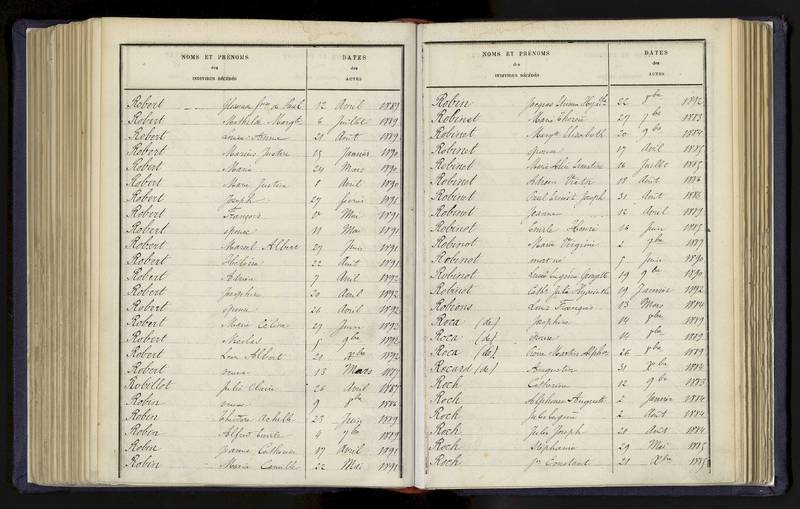 NOMS ET PRÉNOMS
des
INDIVIDUS DÉCÉDÉS
DATES
des
ACTES
Robert 12 Avril 1889
Robert Mathilde Margte 6 Juillet 1889
Robert Louise Anna 21 Août 1889
Robert Marius Justin 15 Janvier 1890
Robert Marie 24 Mars 1890
Robert Marie Justine 1 Avril 1890
Robert Joseph 27 février 1891
Robert François Mai 1891
Robert épouse 11 Mai 1891
Robert Marcel Albert 27 Juin 1891
Robert 22 Août 1891
Robert Adrien 7 Avril 1892
Robert Joséphine 20 Avril 1892
Robert épouse 26 Avril 1892
Robert Marie Célina 29 Juin 1892
Robert Nicolas 5 9bre 1892
Robert Léon Albert 21 Xbre 1892
Robert 13 Mars 1887
Robillot Julie Claire 26 Avril 1887
Robin 9 8bre 1886
Robin Achille 23 Juin 1889
Robin Alfred Emile 4 7bre 1889
Robin Jeanne Catherine 17 Avril 1891
Robin Marie Camille 22 Mai 1891
NOMS ET PRÉNOMS
des
INDIVIDUS DÉCÉDÉS
DATES
des
ACTES
Robin Jacques 22 8bre 1892
Robinet Marie 27 7bre 1883
Robinet Margte Elisabeth 20 9bre 1884
Robinet épouse 17 Avril 1885
Robinet Marie 16 Juillet 1885
Robinet Adrien Victor 18 Août 1886
Robinet Paul Joseph 31 Août 1886
Robinet Jeanne 12 Avril 1889
Robinot Emile Henri 14 Juin 1885
Robinot Marie Virginie 2 7bre 1887
Robinot 5 Juin 1890
Robinot 19 9bre 1890
Robinot Julie Hyacinthe 19 Janvier 1892
Robions Louis François 13 Mars 1884
Roca (de) Joséphine 14 8bre 1889
Roca (de) épouse 14 8bre 1889
Roca (de) 26 8bre 1889
Rocard (de) Augustin 31 Xbre 1884
Roch Catherine 12 9bre 1883
Roch Alphonse 2 Janvier 1884
Roch Jules 2 Août 1884
Roch Jules Joseph 21 Août 1884
Roch Stéphanie 29 Mai 1885
Roch Constant 21 Xbre 1885